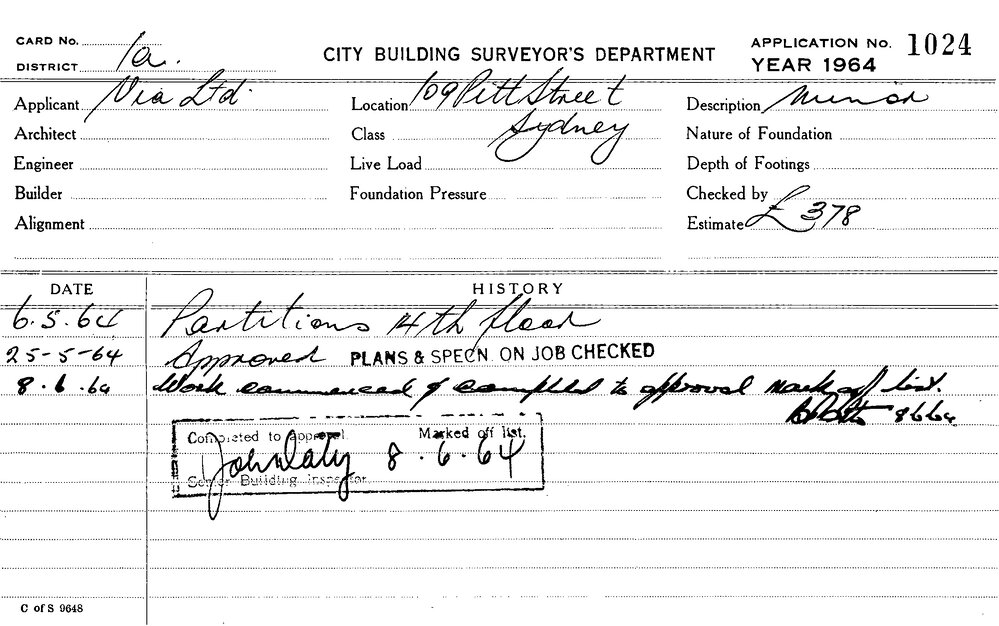 CARD No. 1a.
DISTRICT
CITY BUILDING SURVEYOR'S DEPARTMENT
APPLICATION No. 1024
YEAR 1964
Applicant Via Ltd.
Location 109 Pitt Street
Description Minor
Architect
Class Sydney
Nature of Foundation
Engineer
Live Load
Depth of Footings
Builder
Foundation Pressure
Checked by
Alignment
Estimate £378
DATE HISTORY
6.5.64 Partitions 14th floor
25-5-64 Approved PLANS & SPECN. ON JOB CHECKED
8.6.64 Work commenced & completed to approval mark off list.
8664
Completed to approval. Marked off list.
8.6.64
Senior Building Inspector
C of S 9648